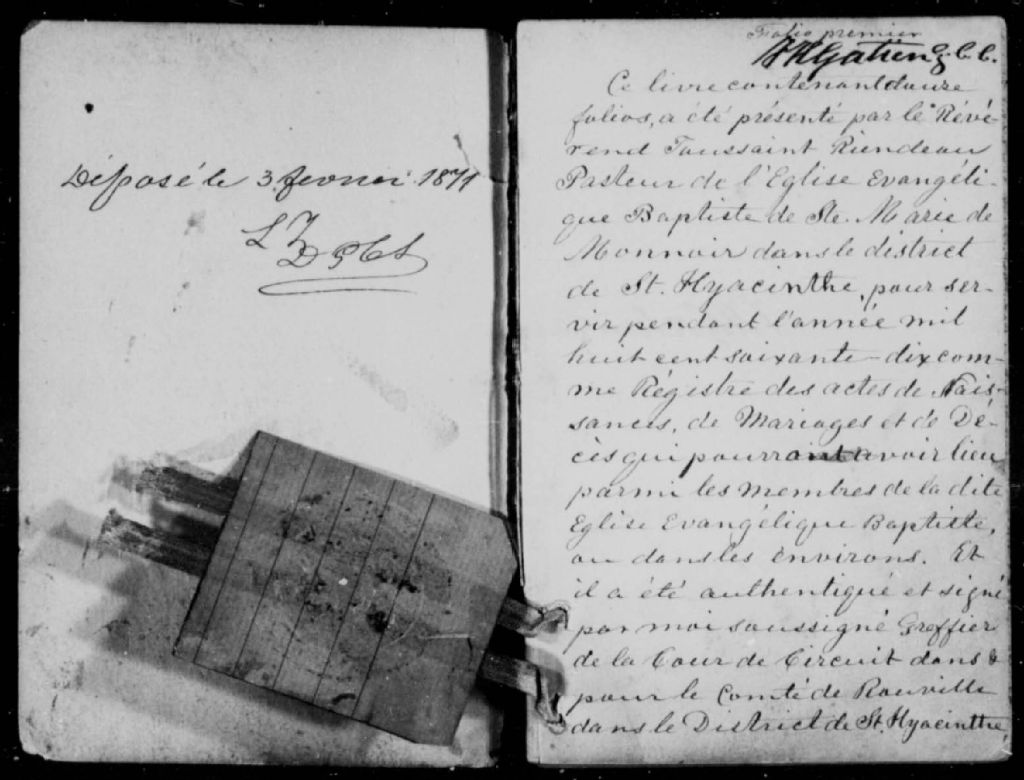 Déposé le 3 fevrier 1871
Folio premier
G.C.C.
Ce livre contenant douze
folios, a été présenté par le Révé-
rend Toussaint Riendeau
Pasteur de l'Eglise Evangéli-
que Baptiste de Ste. Marie de
Monnoir dans le district
de St. Hyacinthe, pour ser-
vir pendant l'année mil
huit cent soixante-dix com-
me Régistre des actes de Nais-
sances, de Mariages et de Dé-
cès qui pourront avoir lieu
parmi les membres de la dite
Eglise Evangélique Baptiste,
ou dans les environs. Et
il a été authentiqué et signé
par moi soussigné Greffier
de la Cour de Circuit dans &
pour le Comté de Rouville
dans le District de St. Hyacinthe,